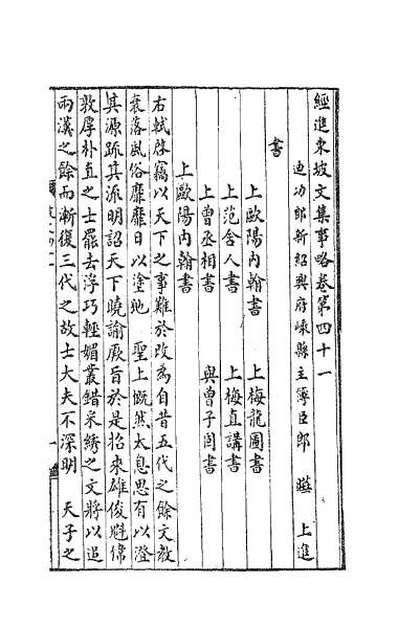 經進東坡文集事略卷第四十一
迪功郎新紹興府嵊縣主簿臣郎 曄 上進
書
上歐陽內翰書 上梅龍圖書
上范舍人書 上梅直講書
上曾丞相書 與曾子固書
上歐陽內翰書
右軾啓竊以天下之事難於改為自昔五代之餘文教
衰落風俗靡靡日以塗地 聖上慨然太息思有以澄
其源疏其流明詔天下曉諭厥旨於是招來雄俊魁偉
敦厚朴直之士罷去浮巧輕媚叢錯采綉之文將以追
兩漢之餘而漸復三代之故士大夫不深明 天子之